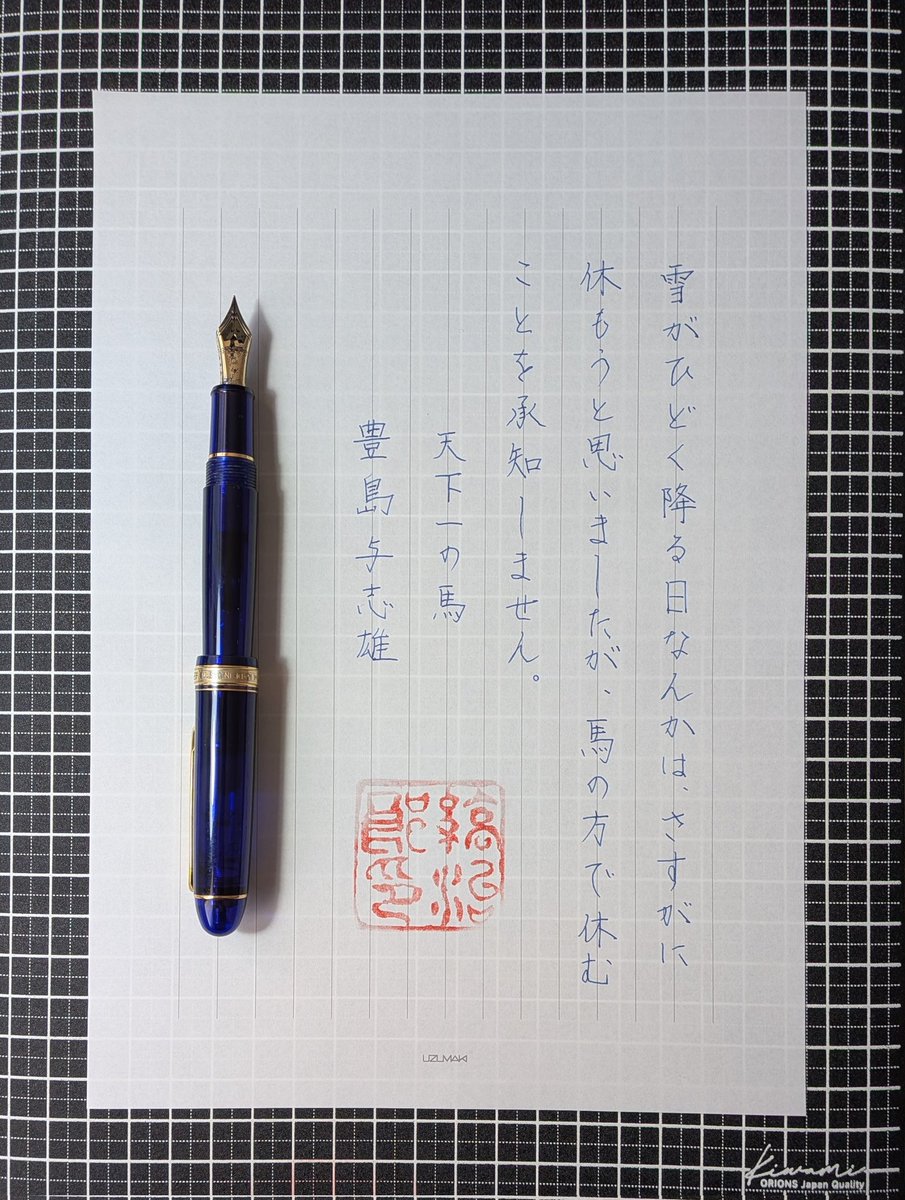 雪がひどく降る日なんかは、さすがに
休もうと思いましたが、馬の方で休む
ことを承知しません。
天下一の馬
豊島与志雄
UZUMAKI
Kiwami
ORIONS Japan Quality